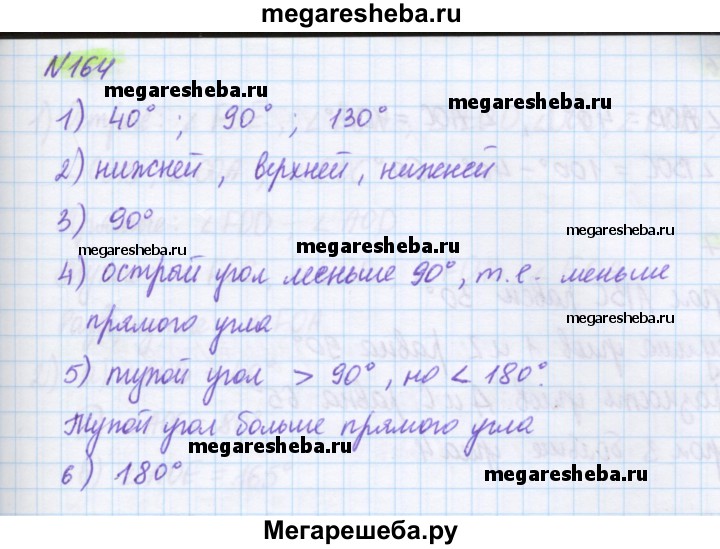 megaresheba.ru
N164
megaresheba.ru megaresheba.ru
1) 40° ; 90° ; 130°
2) нижней, верхней, нижней
3) 90°
megaresheba.ru megaresheba.ru
4) острый угол меньше 90°, т.е. меньше
прямого угла
megaresheba.ru
5) тупой угол > 90°, но < 180°.
Тупой угол больше прямого угла
megaresheba.ru megaresheba.ru
6) 180°
Мегарешеба.ру